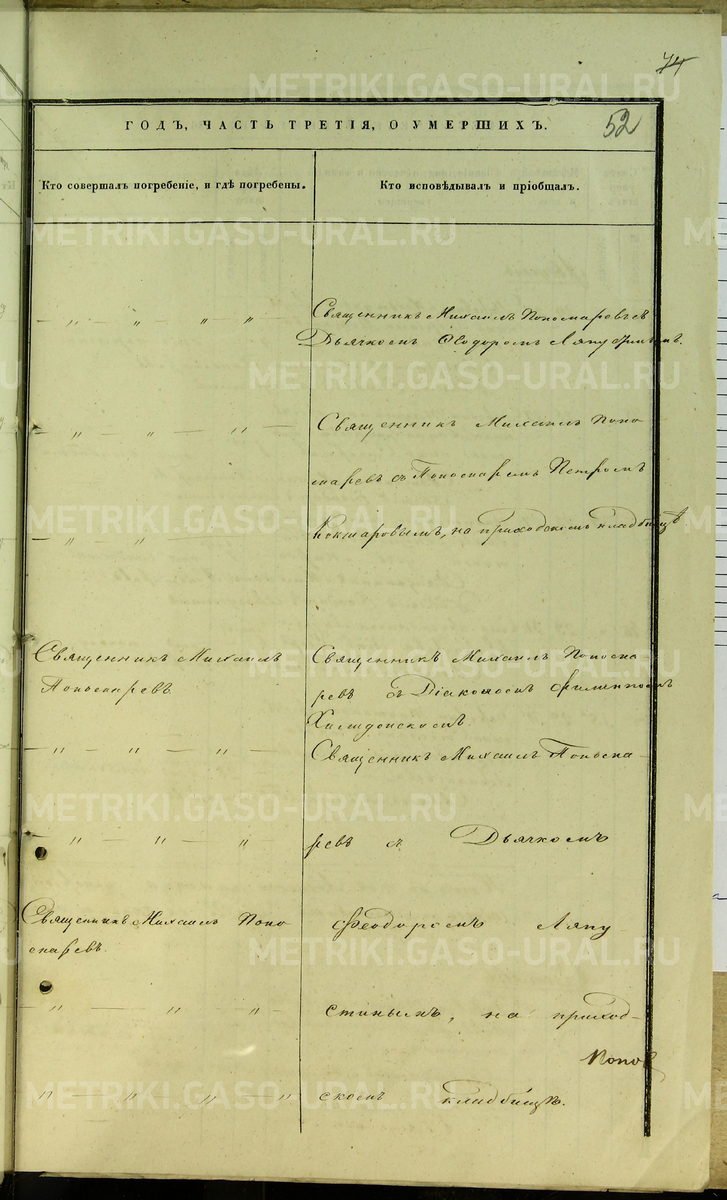 74
52
ГОДЪ, ЧАСТЬ ТРЕТІЯ, О УМЕРШИХЪ.
Кто совершалъ погребеніе, и гдѣ погребены.
Кто исповѣдывалъ и пріобщалъ.
— „ — „ — „ — „
Священникъ Михаилъ Пономаревъ съ
Дьячкомъ Ѳеодоромъ
— „ — „ — „ —
Священникъ Михаилъ Поно
маревъ съ Пономаремъ Петромъ
— „ — „
Кокшаровымъ, на приходскомъ кладбищѣ
Священникъ Михаилъ
Пономаревъ
Священникъ Михаилъ Понома
ревъ съ Діакономъ Филиппомъ
— „ — „ — „
Священникъ Михаилъ Понома-
— „ — „ — „
ревъ съ Дьячкомъ
Священникъ Михаилъ Поно
маревъ.
Феодоромъ Ляпу
— „ — „ — „
стинымъ, на приход-
Попов
„ — „ — „ — „
скомъ кладбищѣ.
METRIKI.GASO-URAL.RU